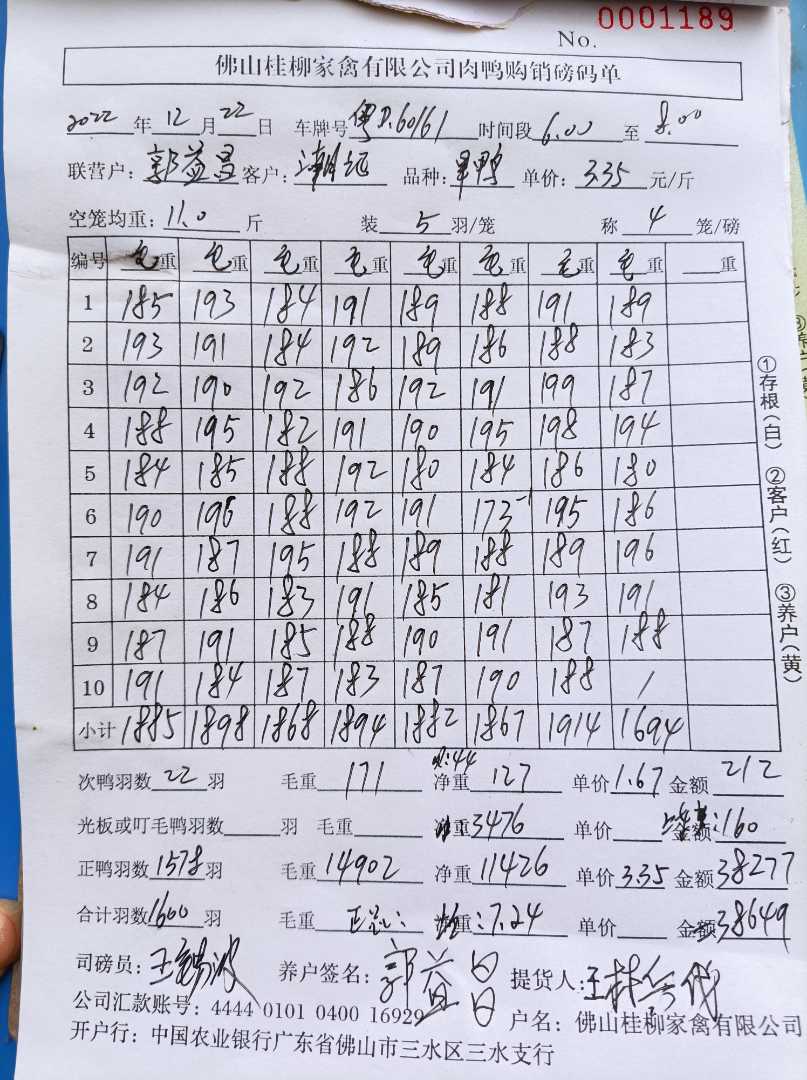 No. 0001189
佛山桂柳家禽有限公司肉鸭购销磅码单
2022年12月22日 车牌号粤D.60161 时间段6.00至8.00
联营户：郭益昌 客户：潮远 品种：旱鸭 单价：3.35元/斤
空笼均重：11.0斤 装5羽/笼 称4笼/磅
编号 毛重 毛重 毛重 毛重 毛重 毛重 毛重 毛重 重
1 185 193 184 191 189 188 191 189
2 193 191 184 192 189 186 188 183
3 192 190 192 186 192 191 199 187
4 188 195 182 191 190 195 198 194
5 184 185 188 192 180 184 186 180
6 190 196 188 192 191 173-1 195 186
7 191 187 195 188 189 188 189 196
8 184 186 183 191 185 181 193 191
9 187 191 185 188 190 191 187 188
10 191 184 187 183 187 190 188 /
小计 1885 1898 1868 1894 1882 1867 1914 1694
:44
次鸭羽数22羽 毛重171 净重127 单价1.67 金额212
光板或叮毛鸭羽数 羽 毛重 重3476 单价 金额:160
正鸭羽数1578羽 毛重14902 净重11426 单价3.35 金额38277
合计羽数1600羽 毛重 重:7.24 单价 金38649
司磅员： 养户签名：郭益昌 提货人：
公司汇款账号：4444 0101 0400 16929 户名：佛山桂柳家禽有限公司
开户行：中国农业银行广东省佛山市三水区三水支行
①存根(白) ②客户(红) ③养户(黄)